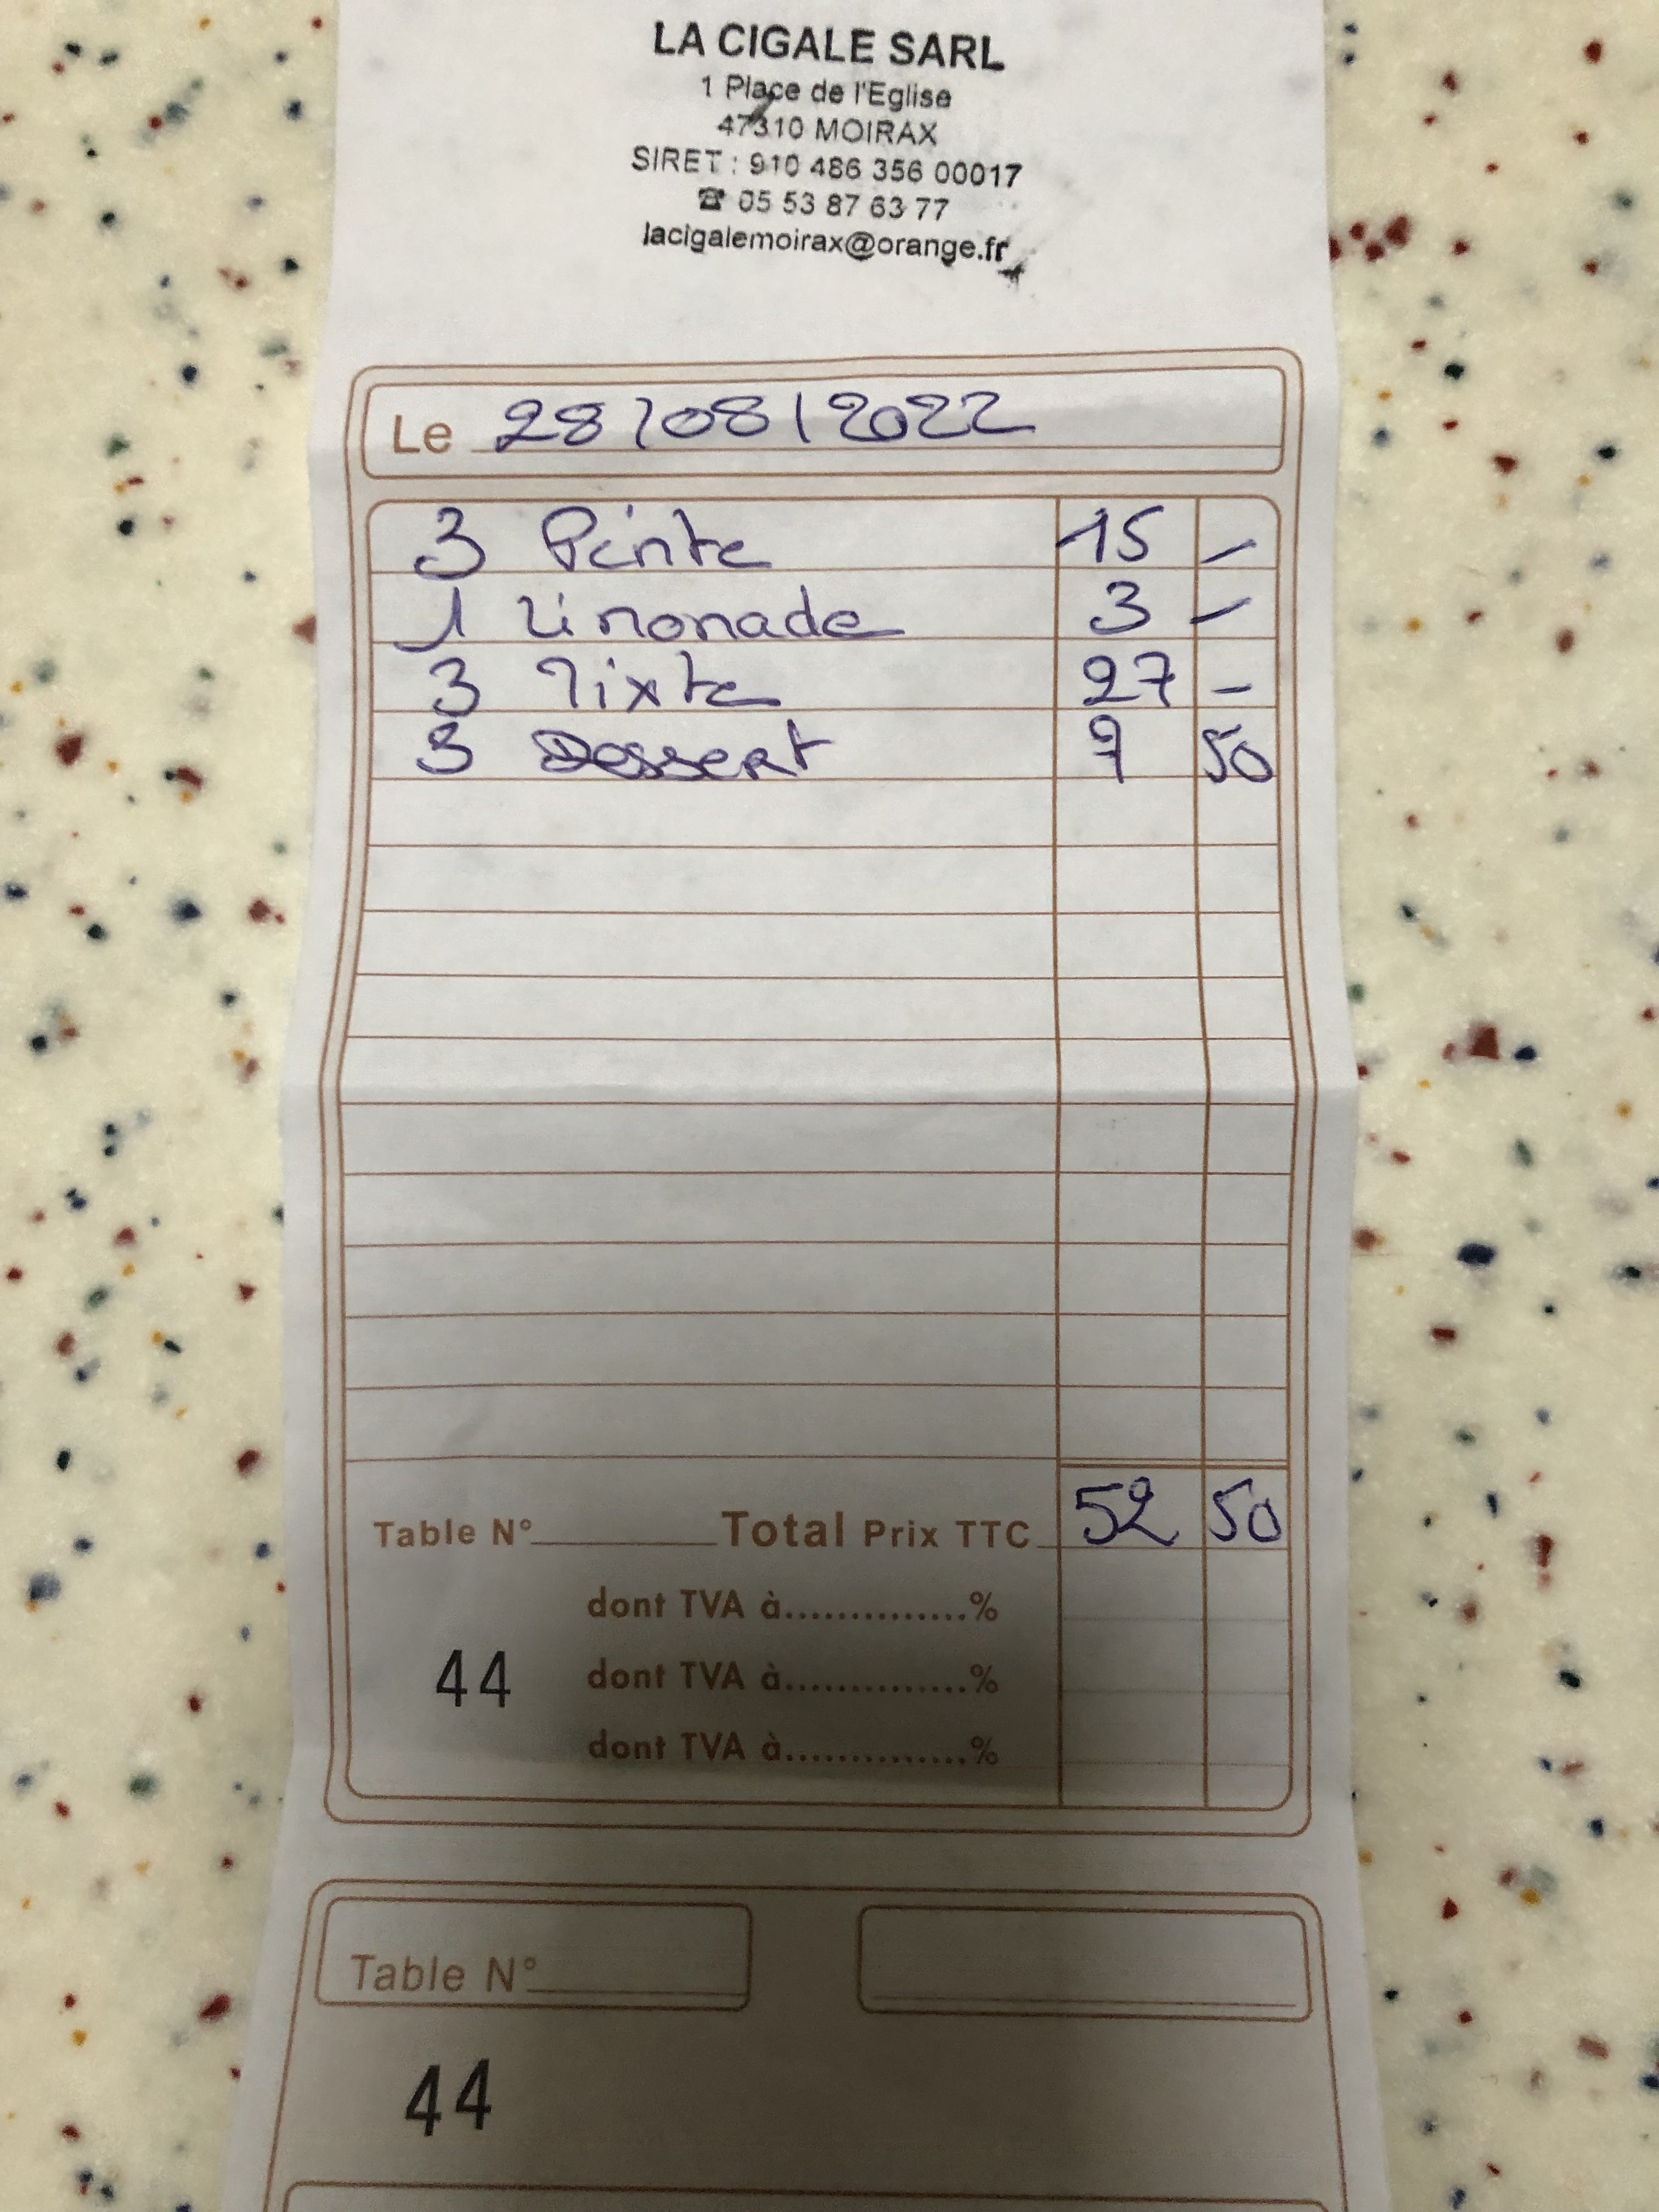 LA CIGALE SARL
1 Place de l'Eglise
47310 MOIRAX
SIRET : 910 486 356 00017
☎ 05 53 87 63 77
lacigalemoirax@orange.fr
Le 28/08/2022
3 Pinte 15 -
1 Limonade 3 -
3 Mixte 27 -
3 Dessert 7 50
Table N° Total Prix TTC 52 50
dont TVA à..............%
44 dont TVA à..............%
dont TVA à..............%
Table N°
44